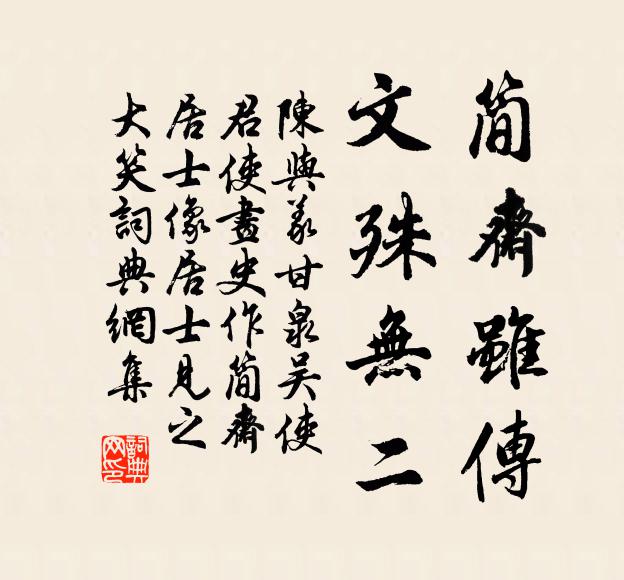 簡齋雖傳
文殊無二
陳與義甘泉吴使
君使畫史作簡齋
居士像居士見之
大笑詞典網集
詞典
网印